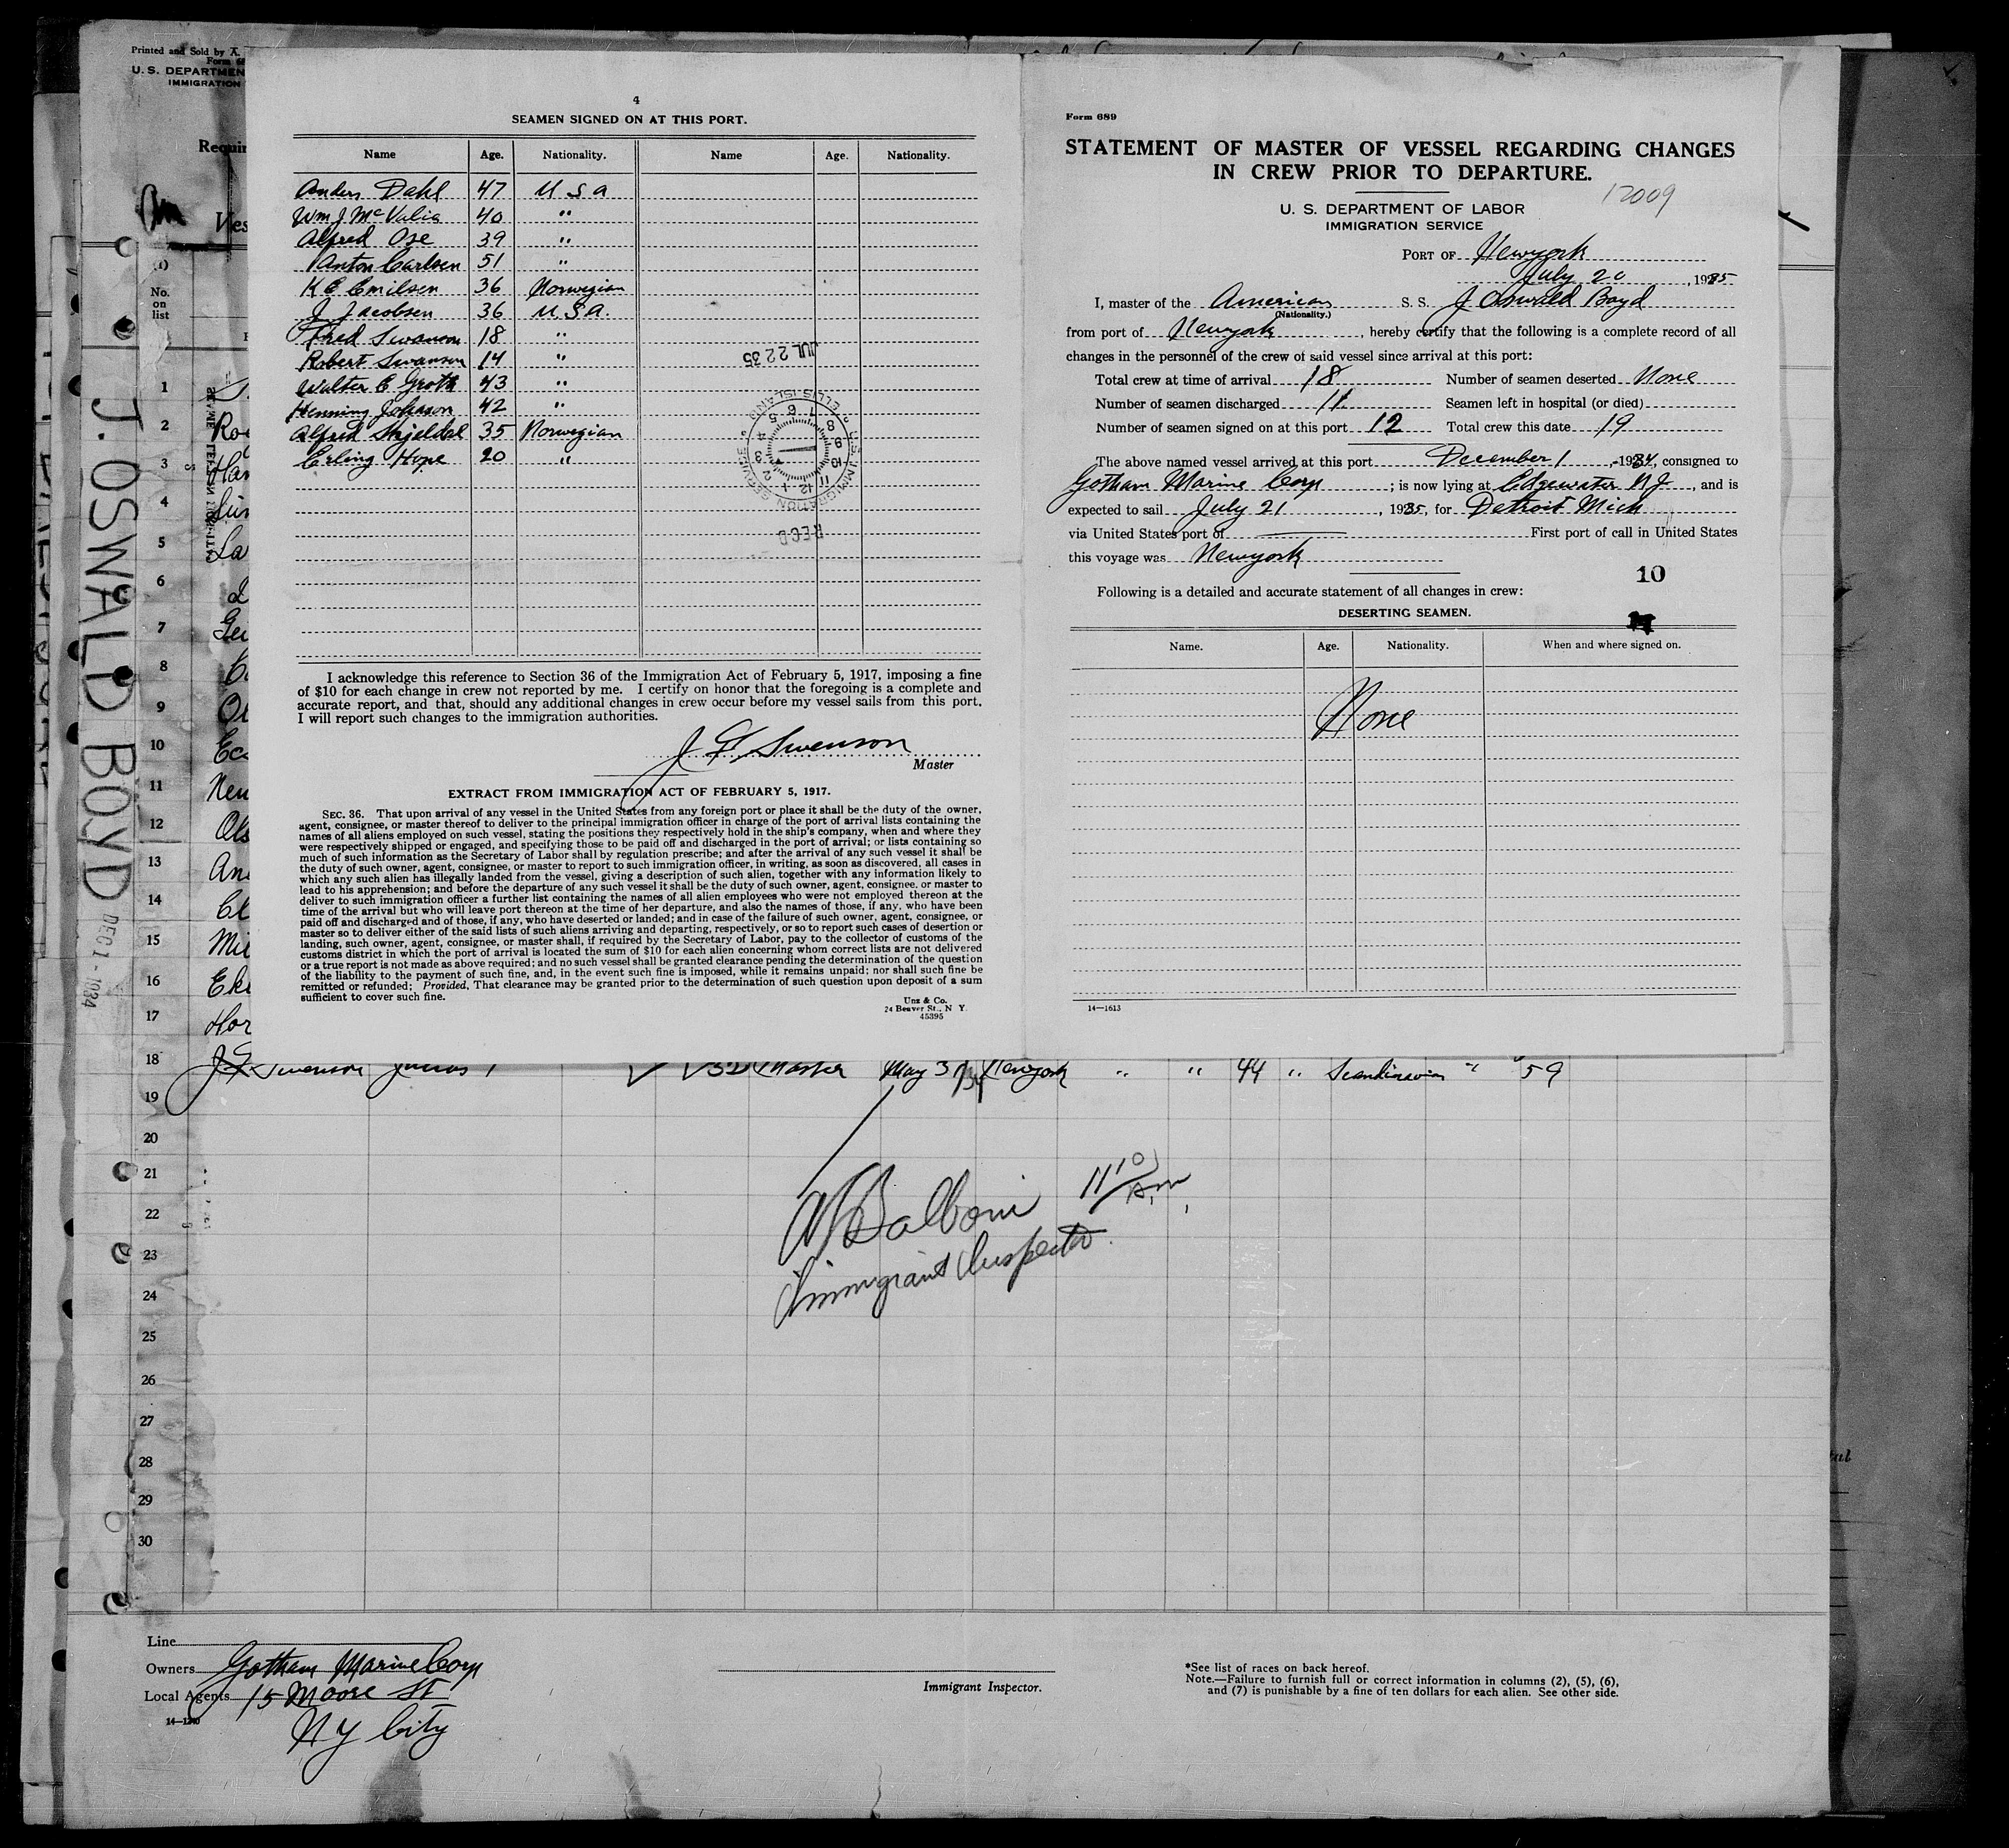 Printed and Sold by A.
Form 68
U. S. DEPARTMEN
IMMIGRATION
Requir
Ves
(1)
No.
on
list
J. OSWALD BOYD
DEC 1 - 1934
4
SEAMEN SIGNED ON AT THIS PORT.
Name Age. Nationality. Name Age. Nationality.
Anders Dahl 47 U S A
Wm J McValia 40 "
Alfred Ose 39 "
Anton Carlsen 51 "
K E Emilsen 36 Norwegian
J Jacobsen 36 U.S.A.
Fred Swanson 18 "
Robert Swanson 14 "
Walter C Groth 43 "
Henning Johnson 42 "
Alfred Skjeldal 35 Norwegian
Erling Hope 20 "
JUL 22 35
U.S. IMMIGRATION SERVICE
ELLIS ISLAND
REC'D
I acknowledge this reference to Section 36 of the Immigration Act of February 5, 1917, imposing a fine
of $10 for each change in crew not reported by me. I certify on honor that the foregoing is a complete and
accurate report, and that, should any additional changes in crew occur before my vessel sails from this port,
I will report such changes to the immigration authorities.
J G Swenson
Master
EXTRACT FROM IMMIGRATION ACT OF FEBRUARY 5, 1917.
SEC. 36. That upon arrival of any vessel in the United States from any foreign port or place it shall be the duty of the owner,
agent, consignee, or master thereof to deliver to the principal immigration officer in charge of the port of arrival lists containing the
names of all aliens employed on such vessel, stating the positions they respectively hold in the ship's company, when and where they
were respectively shipped or engaged, and specifying those to be paid off and discharged in the port of arrival; or lists containing so
much of such information as the Secretary of Labor shall by regulation prescribe; and after the arrival of any such vessel it shall be
the duty of such owner, agent, consignee, or master to report to such immigration officer, in writing, as soon as discovered, all cases in
which any such alien has illegally landed from the vessel, giving a description of such alien, together with any information likely to
lead to his apprehension; and before the departure of any such vessel it shall be the duty of such owner, agent, consignee. or master to
deliver to such immigration officer a further list containing the names of all alien employees who were not employed thereon at the
time of the arrival but who will leave port thereon at the time of her departure, and also the names of those, if any, who have been
paid off and discharged and of those, if any, who have deserted or landed; and in case of the failure of such owner, agent, consignee, or
master so to deliver either of the said lists of such aliens arriving and departing, respectively, or so to report such cases of desertion or
landing, such owner, agent, consignee, or master shall, if required by the Secretary of Labor, pay to the collector of customs of the
customs district in which the port of arrival is located the sum of $10 for each alien concerning whom correct lists are not delivered
or a true report is not made as above required; and no such vessel shall be granted clearance pending the determination of the question
of the liability to the payment of such fine, and, in the event such fine is imposed, while it remains unpaid; nor shall such fine be
remitted or refunded; Provided, That clearance may be granted prior to the determination of such question upon deposit of a sum
sufficient to cover such fine.
Unz & Co.
24 Beaver St., N Y.
45395
Form 689
STATEMENT OF MASTER OF VESSEL REGARDING CHANGES
IN CREW PRIOR TO DEPARTURE.
12009
U. S. DEPARTMENT OF LABOR
IMMIGRATION SERVICE
PORT OF Newyork
July 20, 1935
I, master of the American S. S. J Oswald Boyd
(Nationality.)
from port of Newyork, hereby certify that the following is a complete record of all
changes in the personnel of the crew of said vessel since arrival at this port:
Total crew at time of arrival 18 Number of seamen deserted None
Number of seamen discharged 11 Seamen left in hospital (or died)
Number of seamen signed on at this port 12 Total crew this date 19
The above named vessel arrived at this port December 1, 1934, consigned to
Gotham Marine Corp; is now lying at Edgewater N J, and is
expected to sail July 21, 1935, for Detroit Mich
via United States port of First port of call in United States
this voyage was Newyork
10
Following is a detailed and accurate statement of all changes in crew:
DESERTING SEAMEN.
Name. Age. Nationality. When and where signed on.
None
14—1613
1
2 Ro
3 Han
4
5 La
6
7 Ge
8
9 Ol
10 Ec
11 Nen
12 Ols
13 An
14 Cl
15 Mi
16 Ek
17 Hor
18 J G Swenson Julius 32 Master May 31/34 Newyork " " 44 " Scandinavian " 59
19
20
21
22
23
24
25
26
27
28
29
30
Balboni 11 10 A.m.
Immigrant Inspector.
Line
Owners Gotham Marine Corp
Local Agents 15 Moore St
N Y City
14—1240
Immigrant Inspector.
*See list of races on back hereof.
Note.—Failure to furnish full or correct information in columns (2), (5), (6),
and (7) is punishable by a fine of ten dollars for each alien. See other side.